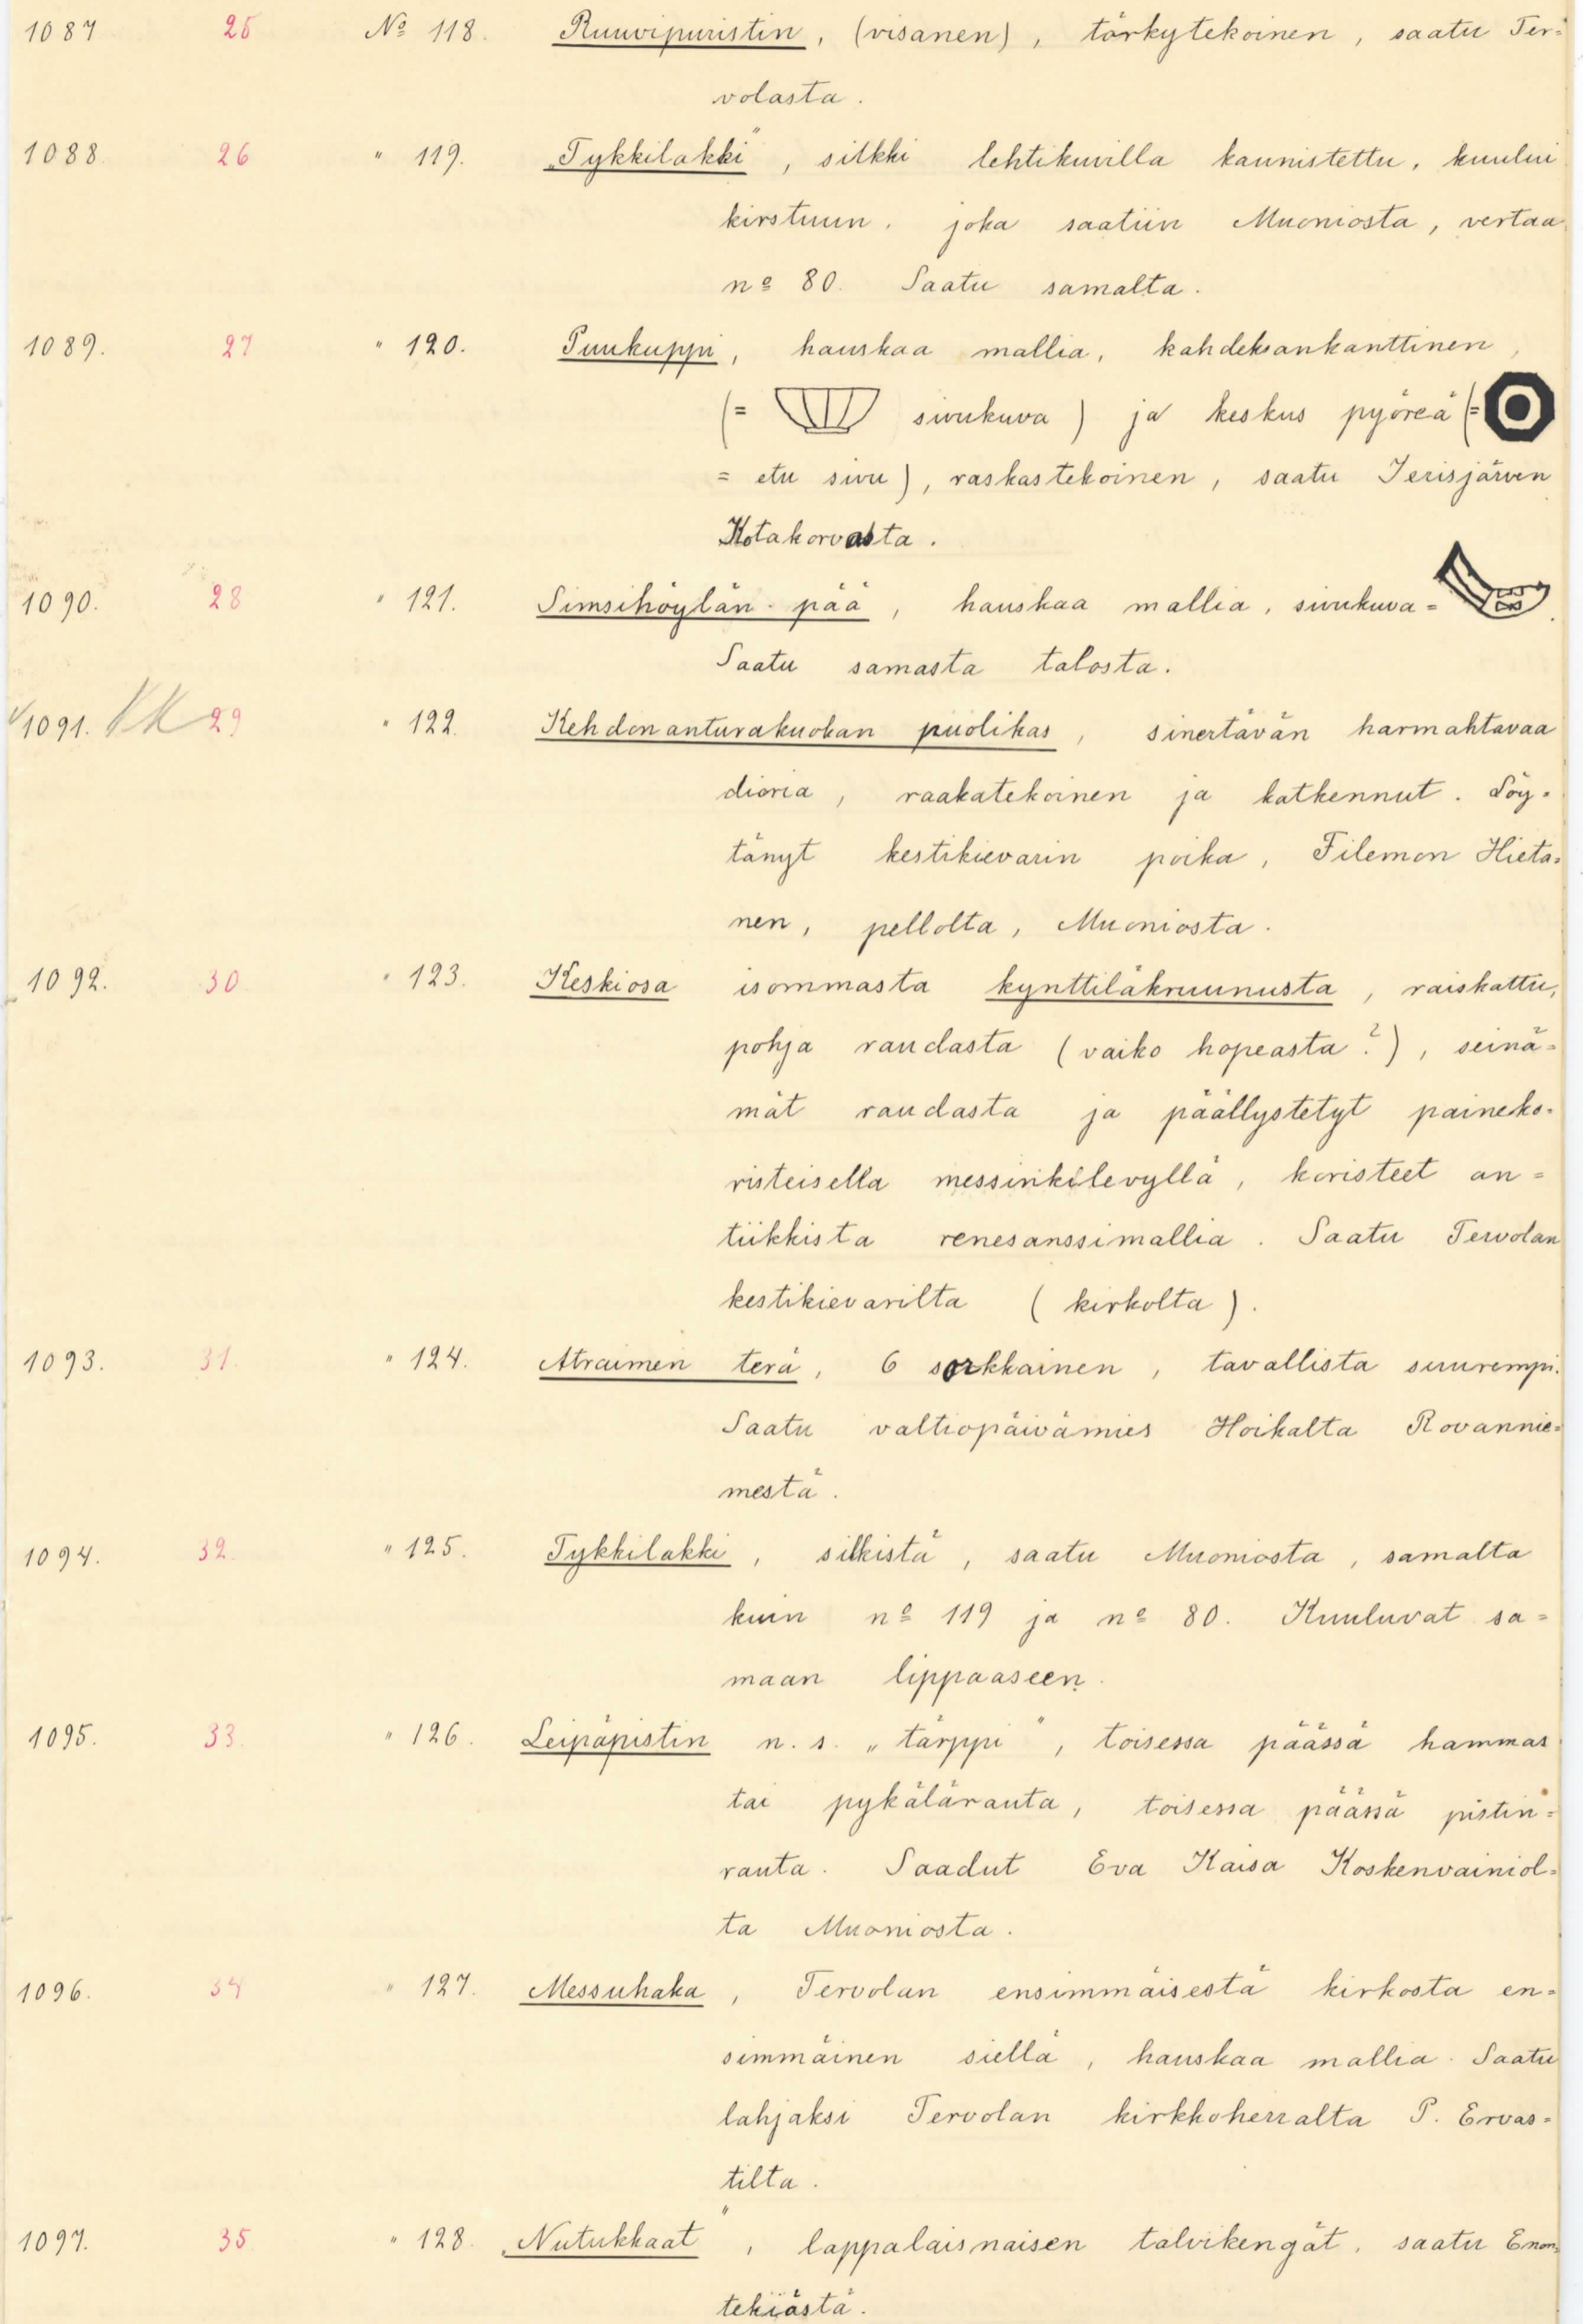 1087 25 No 118. Ruuvipuristin, (visanen), törkytekoinen, saatu Ter=
volasta.
1088. 26 " 119. „Tykkilakki", silkki lehtikuvilla kaunistettu, kuului
kirstuun, joka saatiin Muoniosta, vertaa
no 80. Saatu samalta.
1089. 27 " 120. Puukuppi, hauskaa mallia, kahdeksankanttinen,
(= sivukuva) ja keskus pyöreä (=
= etu sivu), raskastekoinen, saatu Jerisjärven
Kotakorvasta.
1090. 28 " 121. Simsihöylän-pää, hauskaa mallia, sivukuva =
Saatu samasta talosta.
√1091. KK 29 " 122. Kehdonanturakuokan puolikas, sinertävän harmahtavaa
dioria, raakatekoinen ja katkennut. Löy-
tänyt kestikievarin poika, Filemon Hieta=
nen, pellolta, Muoniosta.
1092. 30 " 123. Keskiosa isommasta kynttiläkruunusta, raiskattu,
pohja raudasta (vaiko hopeasta?), seinä=
mät raudasta ja päällystetyt paineko=
risteisella messinkilevyllä, koristeet an=
tiikkista renesanssimallia. Saatu Tervolan
kestikievarilta (kirkolta).
1093. 31. " 124. Atraimen terä, 6 sorkkainen, tavallista suurempi.
Saatu valtiopäivämies Hoikalta Rovannie=
mestä.
1094. 32. " 125. Tykkilakki, silkistä, saatu Muoniosta, samalta
kuin no 119 ja no 80. Kuuluvat sa=
maan lippaaseen.
1095. 33. " 126. Leipäpistin n. s. „tärppi", toisessa päässä hammas
tai pykälärauta, toisessa päässä pistin=
rauta. Saadut Eva Kaisa Koskenvainiol=
ta Muoniosta.
1096. 34 " 127. Messuhaka, Tervolan ensimmäisestä kirkosta en=
simmäinen siellä, hauskaa mallia. Saatu
lahjaksi Tervolan kirkkoherralta P. Ervas=
tilta.
1097. 35 " 128. „Nutukkaat", lappalaisnaisen talvikengät, saatu Enon=
tekiästä.